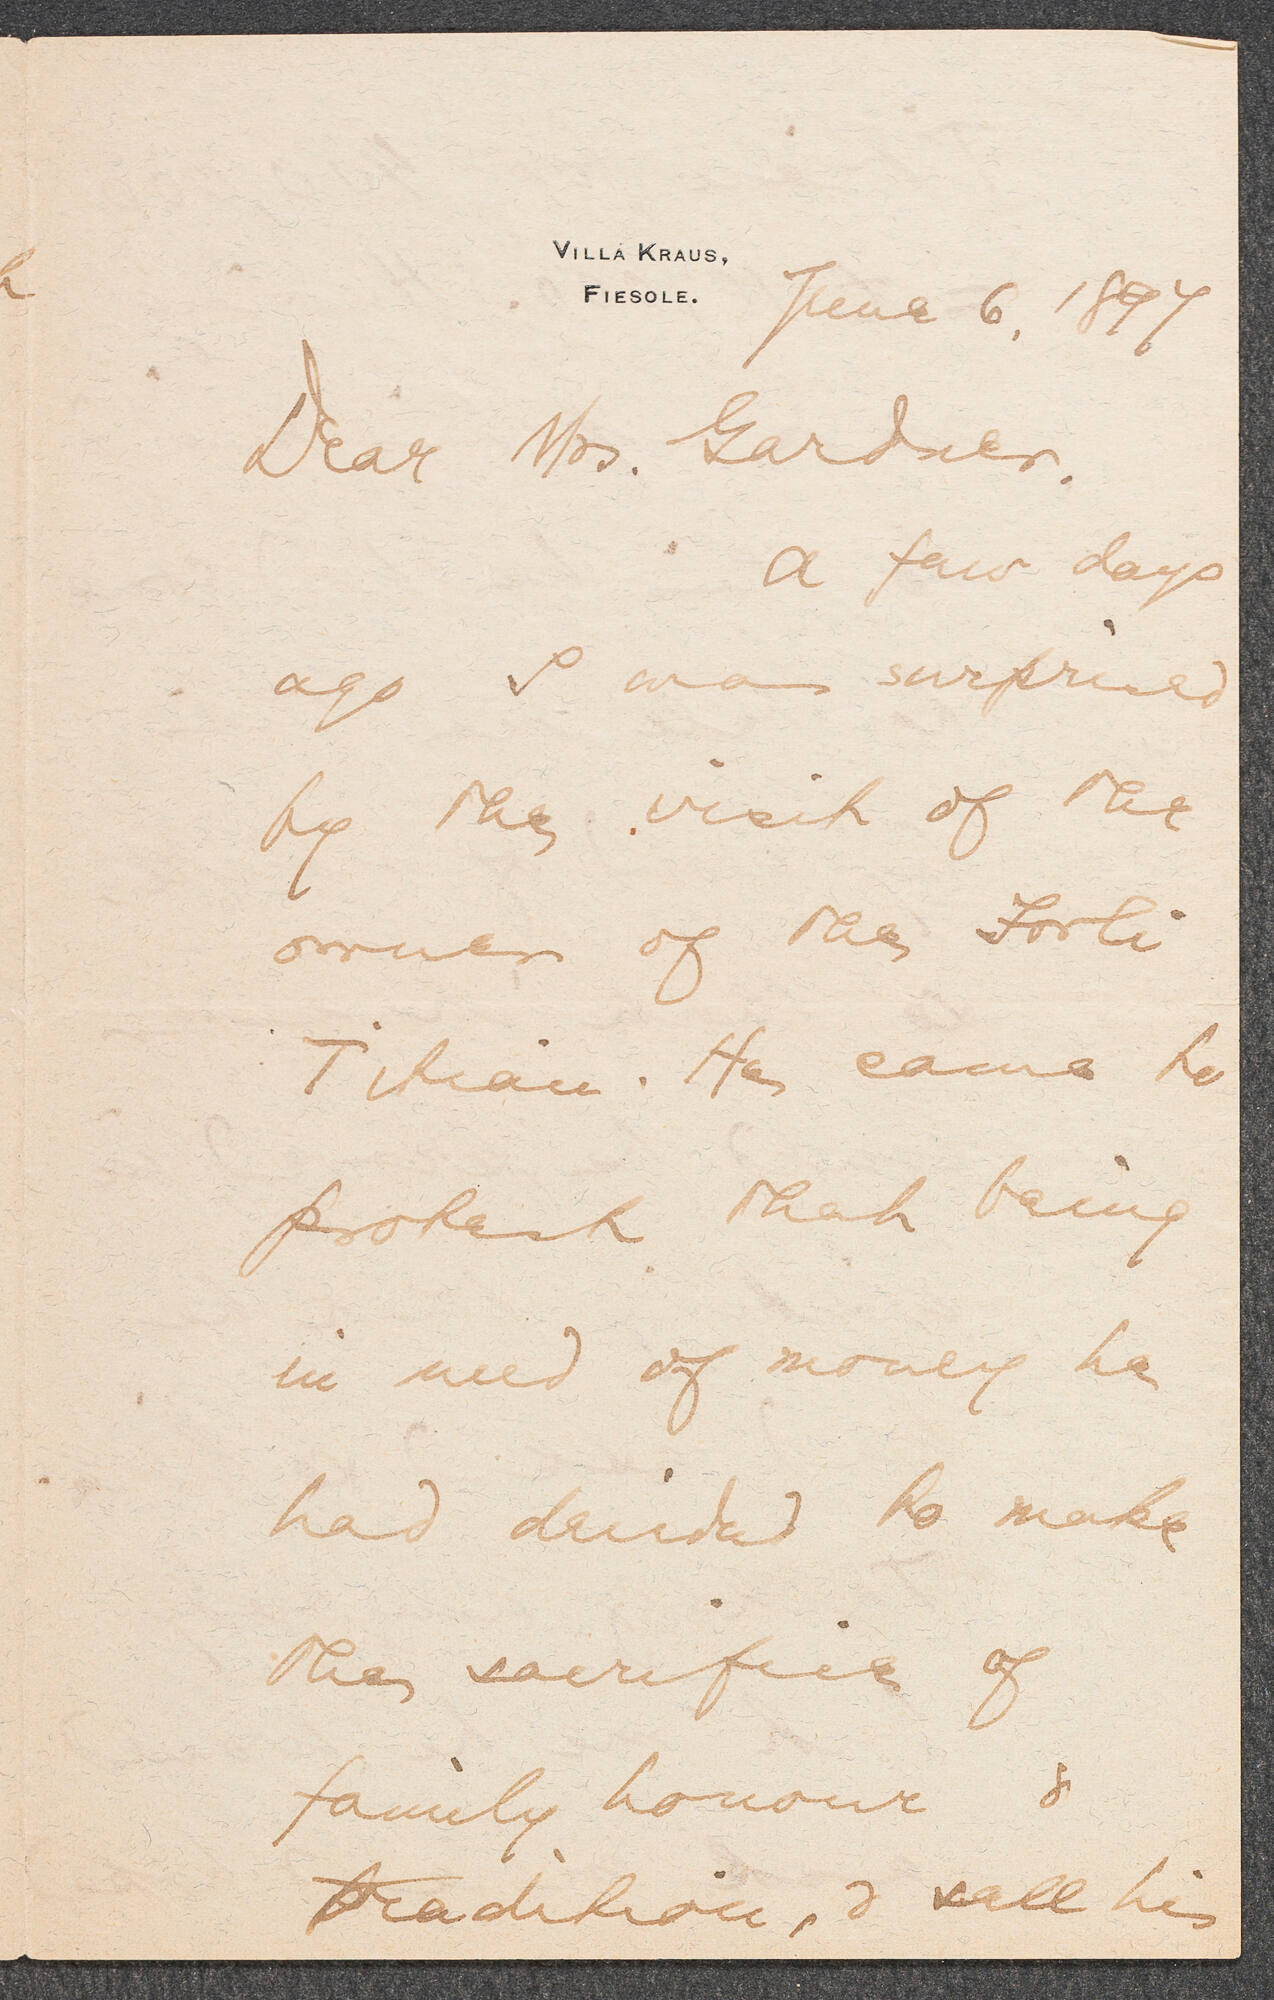 VILLA KRAUS,
FIESOLE.
June 6, 1897
Dear Mrs. Gardner.
A few days
ago I was surprised
by the visit of the
owner of the Forli
Titian. He came to
protest that being
in need of money he
had decided to make
the sacrifice of
family honour &
tradition, & sell his